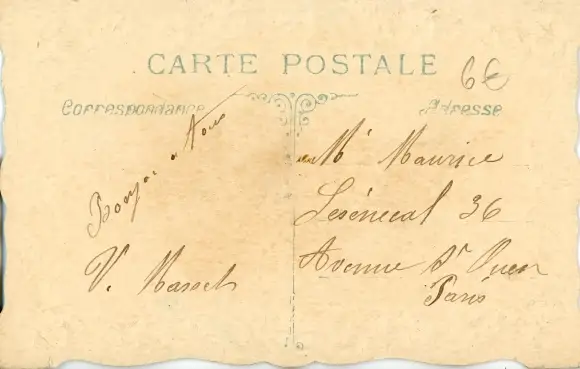 CARTE POSTALE
6€
Correspondance
Adresse
Bonjour a tous
V.
Mr Maurice
Lesénécal 36
Avenue St Ouen
Paris